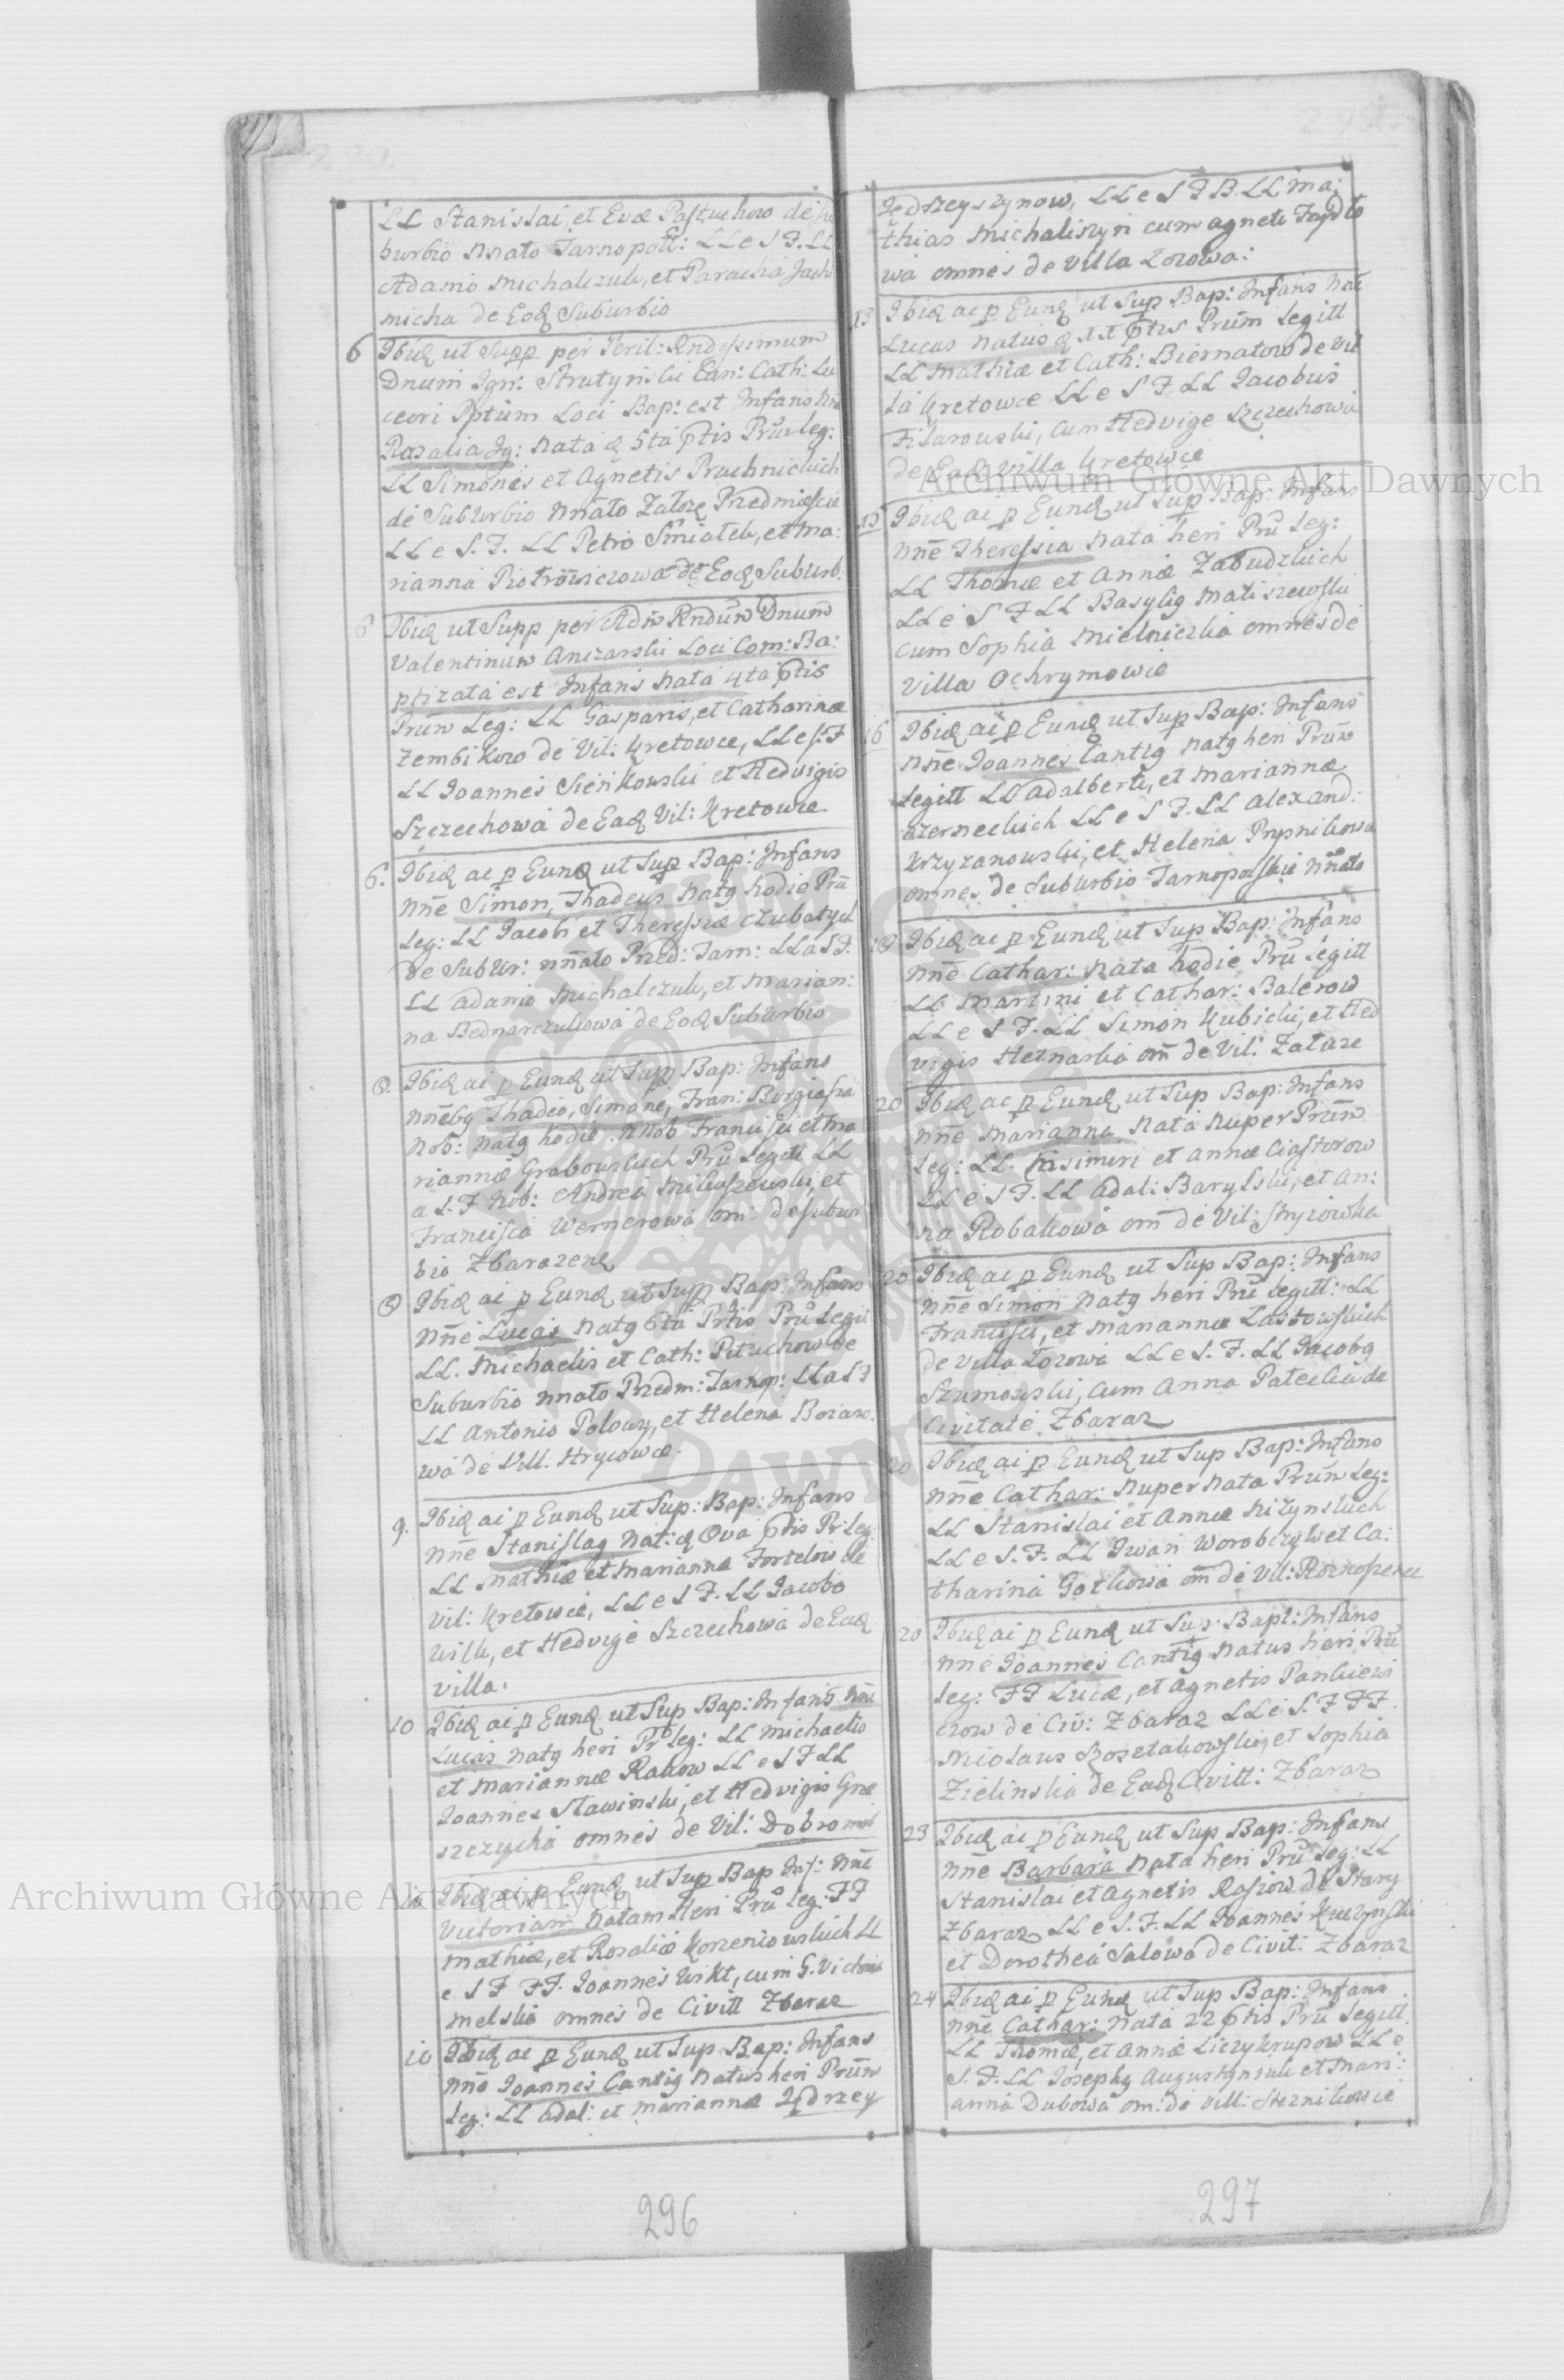 LL Stanislai, et Evæ Pastuchow de su
burbio Nnato Tarnopoll: LL e S F. LL
Adamo Michalczuk, et Parachia Jach
nicha de Eoq Suburbio
6 Ibiq ut Supp per Peril: Rndissimum
Dnum Ign: Strutynski Can: Cath: Lu
ceori Pptum Loci Bap: est Infans Nne
Rosalia Ig: nata q 5ta Ptis Prnr leg:
LL Simonis et Agnetis Pruchnickich
de Suburbio Nnato Zaloze Przedmiescie
LL e S. F. LL Petro Smiatek, et Ma:
rianna Piotrowiczowa de Eoq Suburb.
6 Ibiq ut Supp per Adm Rndum Dnum
Valentinum Anczarski Loci Com: Ba:
ptizata est Infans nata 4ta Ptis
Prun Leg: LL Gasparis, et Catharinæ
Zembikow de Vil: Kretowce, LL e S: F
LL Joannes Sienkowski et Hedvigis
Szczechowa de Eaq Vil: Kretowce.
6. Ibiq ac p Eunq ut Sup Bap: Infans
Nne Simon, Thadeus Natg hodie Pru
Leg: LL Jacobi et Theressiæ Czubatych
de Subur: nnato Pred: Tarn: LL a S F.
LL Adamo Michalczuk, et Marian:
na Bednarczukowa de Eoq Suburbio
8. Ibiq ai p Eunq ut Supp Bap: Infans
Nnebg Thadeo, Simone, Fran: Borgiasza
Nob: Natg hodie, Nnob Francisci et Ma
riannæ Grabowskich Pru Legitt LL
a S. F Nob: Andrea Mikuszewski, et
Francisca Wernerowa om: de subur
bio Zbarazenq
8 Ibiq ai p Eunq ut Supp Bap: Infans
Nne Lucas Natg 6ta Prtis Pru Legit
LL. Michaelis et Cath: Pituchow de
Suburbio Nnato Przedm: Tarnop: LL a S F
LL Antonio Polowy, et Helena Boiaro
wa de Vill. Hrycowce.
9. Ibiq ai p Eunq ut Sup: Bap: Infans
Nne Stanislag Nat: q Ova Ptis Pr Leg
LL Mathiæ et Marianna Fortelow de
Vil: Kretowce, LL e S F. LL Jacobo
Wilk, et Hedvige Szczechowa de Eaq
Villa.
10 Ibiq ai p Eunq ut Sup Bap: Infans Nne
Lucas natg heri Pr Leg: LL Michaelis
et Mariannæ Rakow LL e S F LL
Joannes Slawinski, et Hedvigis Gra
szczycha omnes de Vil: Dobromel
10 Ibiq ai p Eunq ut Sup Bap Inf: Nne
Victoriam Natam Heri Pru Leg: FF
Mathiæ, et Rosaliæ Korzeniowskich LL
e S F FF. Joannes Wikt, cum G. Victoria
melska omnes de Civitt Zbaraz
10 Ibiq ac p Eunq ut Sup Bap: Infans
Nne Joannes Cantig Natus heri Prum
Leg: LL Adal: et Mariannæ Jędrzey
Jędrzeyszynow, LL e S F B. LL Ma:
thias Michaliszyn cum Agnete Faydlo
wa omnes de Villa Lozowa:
13 Ibiq ac p Eunq ut Sup Bap: Infans Nne
Lucas Natus q Ptis Prum Legitt
LL Mathiæ et Cath: Biernatow de Vil
la Kretowce LL e S F. LL Jacobus
Filarowski, cum Hedvige Szczechowa
de Eaq Villa Kretowce
15 Ibiq ai p Eunq ut Sup Bap: Infans
Nne Theressia Nata heri Pru Leg:
LL Thomæ et Annæ Zabudzkich
LL e S F LL Basylig Matiszewski
cum Sophia Mielniczka omnes de
Villa Ochrymowce
16 Ibiq ai p Eunq ut Sup Bap: Infans
Nne Joannes Cantig natg heri Prum
Legitt LL Adalberti, et Mariannæ
Czerneckich LL e S F. LL Alexand:
Krzyzanowski, et Helena Prysnikowa
omnes de Suburbio Tarnopolskie Nnato
18 Ibiq ac p Eunq ut Sup Bap: Infans
Nne Cathar: Nata hodie Pru Legitt
LL Martini et Cathar: Balerow
LL e S F. LL Simon Kubicki, et Hed
vigis Hetnarska om de Vil: Zaluze
20 Ibiq ac p Eunq ut Sup Bap: Infans
Nne Marianna Nata nuper Prum
Leg: LL. Kasimiri et Annæ Ciastorow
LL e S F. LL Adal: Barylski, et An:
na Robakowa om de Vil: Stryiowka
20 Ibiq ac p Eunq ut Sup Bap: Infans
Nne Simon Natg heri Pru Legitt: LL
Francisci, et Mariannæ Lastowskich
de Villa Lozowa LL e S. F. LL Jacobg
Szumowski, cum Anna Patecka de
Civitate Zbaraz
20 Ibiq ai p Eunq ut Sup Bap: Infans
Nne Cathar: Nuper nata Prum Leg:
LL Stanislai et Annæ Nizynskich
LL e S. F. LL Iwan Worobczyk et Ca:
tharina Gotkowa om de Vil: Roznoszence
20 Ibiq ai p Eunq ut Sup: Bapt: Infans
Nne Joannes Cantig natus heri Pru
Leg: FF Lucæ, et Agnetis Pankiewi
czow de Civ: Zbaraz LL e S. F FF.
Nicolaus Kosztakowski, et Sophia
Zielinska de Eaq Civitt: Zbaraz
23 Ibiq ac p Eunq ut Sup Bap: Infans
Nne Barbara Nata heri Pru Leg: LL
Stanislai et Agnetis Rasiow de Stary
Zbaraz LL e S. F. LL Joannes Kuczynski
et Dorothea Salowa de Civit: Zbaraz
24 Ibiq ai p Eunq ut Sup Bap: Infans
Nne Cathar: Nata 22 Ptis Pru Legitt.
LL Thomæ, et Annæ Liczykrupow LL e
S. F. LL Josephg Augustyniuk et Mari:
anna Dubowa om: de Vill: Iternikowce
296
297
Archiwum Główne Akt Dawnych
Archiwum Główne Akt Dawnych